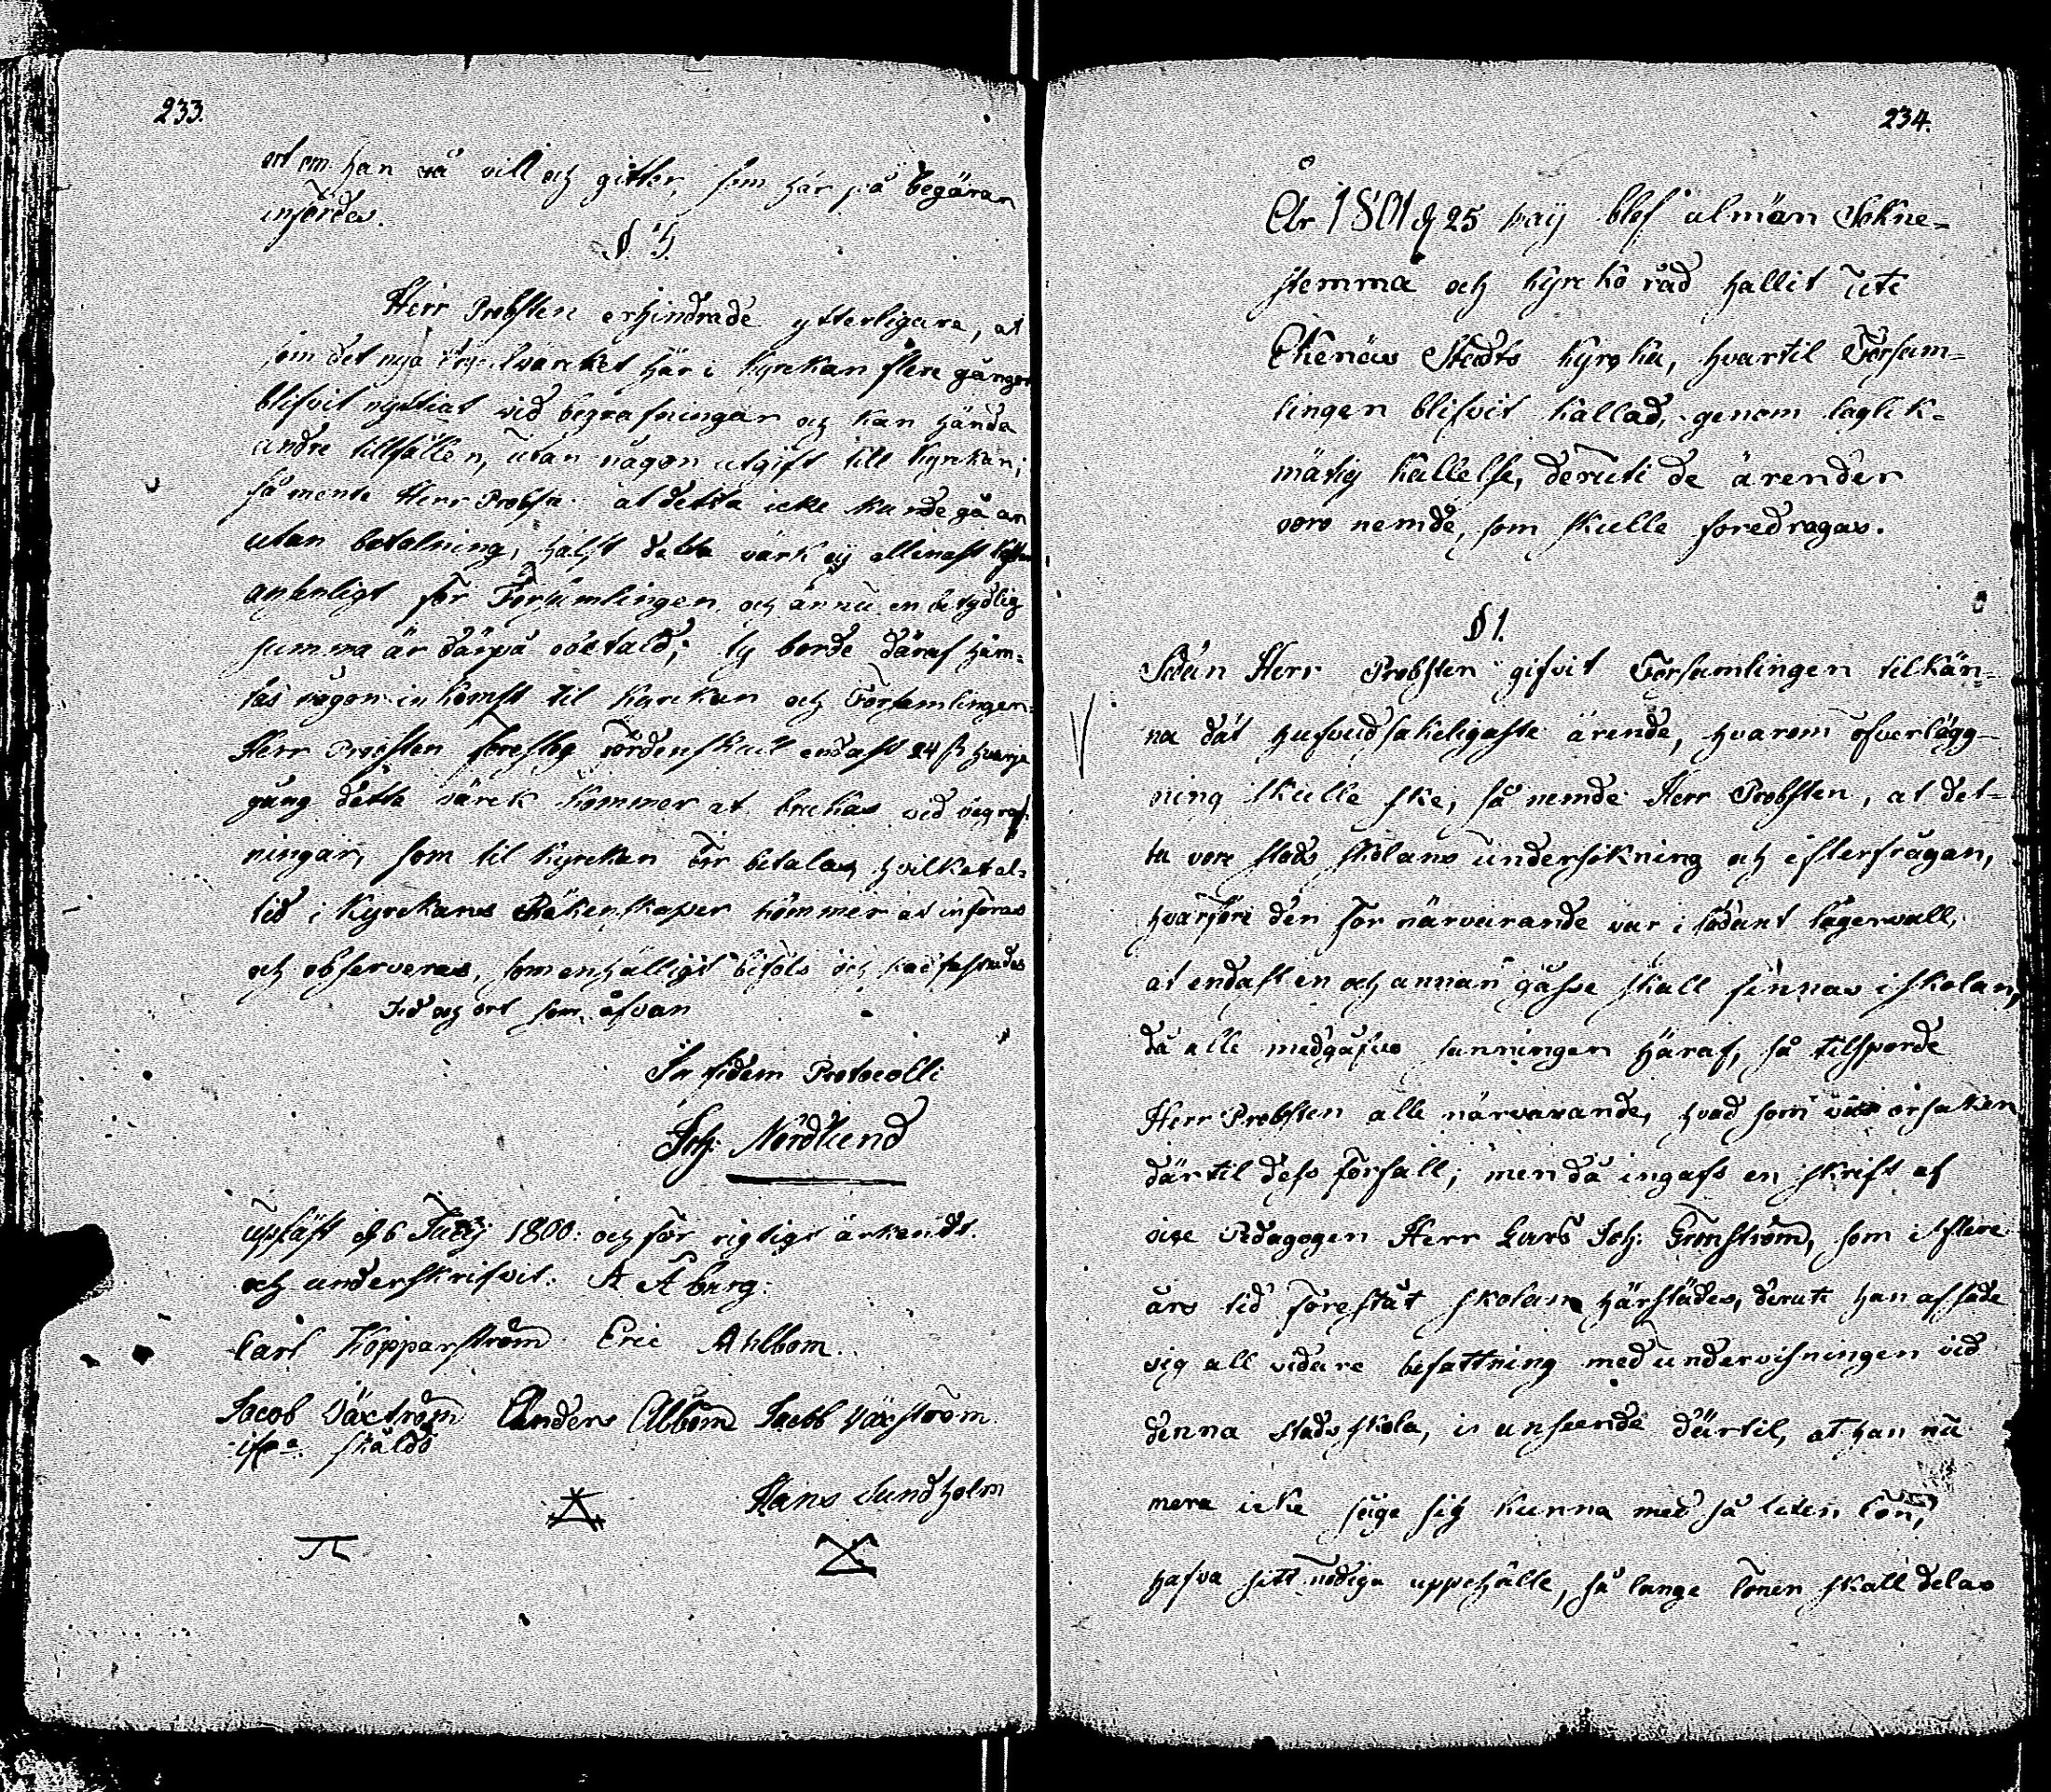 233.
ort om han så vill och gitter, som här på begäran
infördes.
§ 5.
Herr Probsten erhindrade ytterligare, at
som det nya Orgelwärcket här i Kyrckan flere gånger
blifvit nyttiat vid begrafningar och kan hända
andre tillfällen, utan någon utgift till Kyrckan;
så mente Herr Probsten at detta icke kunde gå an
utan betalning, hälst detta värk ej allenast
ansenligt för Församlingen och ännu en betydlig
summa är därpå obetald; ty borde däraf häm-
tas någon inkomst til Kyrckan och Församlingen.
Herr Probsten föreslog fördenskull endast 24 ß hvarje
gång detta värck kommer at brukas vid begraf-
ningar, som til Kyrckan bör betalas, hvilket al-
tid i Kyrckans Räkenskaper kommer at införas
och observeras, som enhälligt biföls och stadfästades
Tid och ort som åfvan
In fidem Protocolli
Joh: Nordlund
Upläst d 6 Julij 1800. och för rigtigt ärkendt.
och underskrifvit. A Åberg.
Carl Kopparström Eric Ahlbom.
Jacob Väström Anders Albom Jacob Växström
Skåldö
Hans Sundholm
234.
År 1801 d 25 Maij blef almän Sokne-
stemma och Kyrcko råd hållit uti
Ekenäs Stads Kyrcka, hvartil Försam-
lingen blifvit kallad, genom laglik-
mätig kallelse, deruti de ärender
voro nemde, som skulle föredragas.
§ 1.
Sedan Herr Probsten gifvit Församlingen tilkän-
na dät hufvudsakeligaste ärende, hvarom öfverlägg-
ning skulle ske, så nemde Herr Probsten, at det-
ta vore stads skolans undersökning och efterfrågan,
hvarföre den för närvarande var i sådant lägervall,
at endast en och annan gåsse skall finnas i skolan,
då alle medgåfvo sanningen häraf, så tilsporde
Herr Probsten alle närvarande, hvad som var orsaken
därtil dess förfall; men då ingafs en skrift af
vice Pedagogen Herr Lars Joh: Grönström, som i flere
års tid förestått skolan härstädes, deruti han afsade
sig all vidare befattning med undervisningen vid
denna stads skola, i anseende därtil, at han nu
mera icke säge sig kunna med så liten lön,
hafva sitt nödiga uppehälle, så länge lönen skall delas